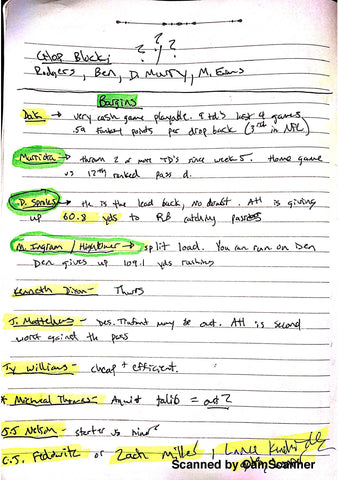 ? ? ?
Chop Block:
Rodgers, Ben, D. Murry, M. Evans
Bargins
Dak → very cash game playable. TD's last 9 games
.59 fantasy points per drop back (3rd in NFL)
Mariota → thrown 2 or more TD's since week 5. Home game
vs 12th ranked pass d.
D. Sproles → He is the lead back, no doubt. Atl is giving
up 60.8 yds to RB catching passes
M. Ingram / Hightower → split load. You can run on Den
Den gives up 109.1 yds rushing
Kenneth Dixon - Thurs
J. Matthews - Des. Trufant may be out. Atl is second
worst against the pass
Ty Williams - cheap + efficient.
* Micheal Thomas - Aquib talib = out?
J.J Nelson - starter vs niners
C.J. Fedowitz or Zach Miller,
Scanned by CamScanner